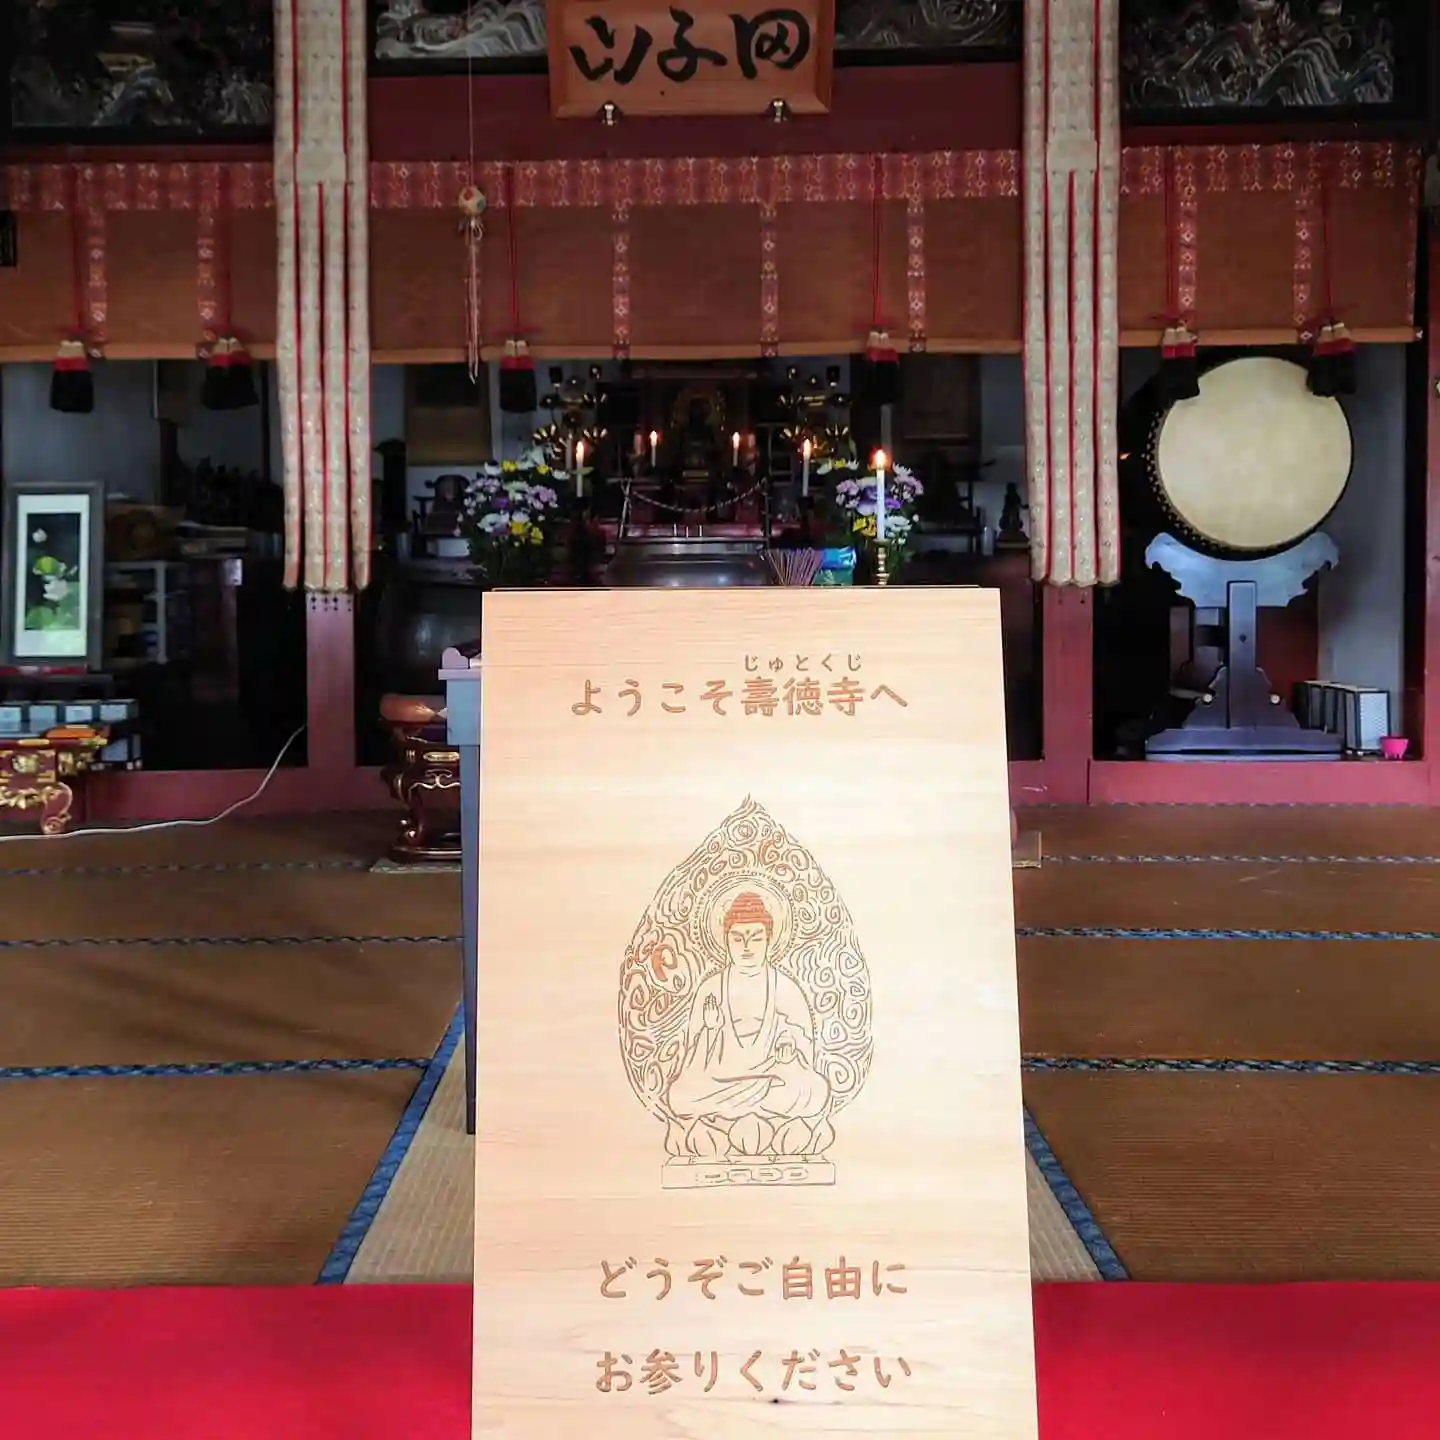 じゅとくじ
ようこそ壽徳寺へ
どうぞご自由に
お参りください